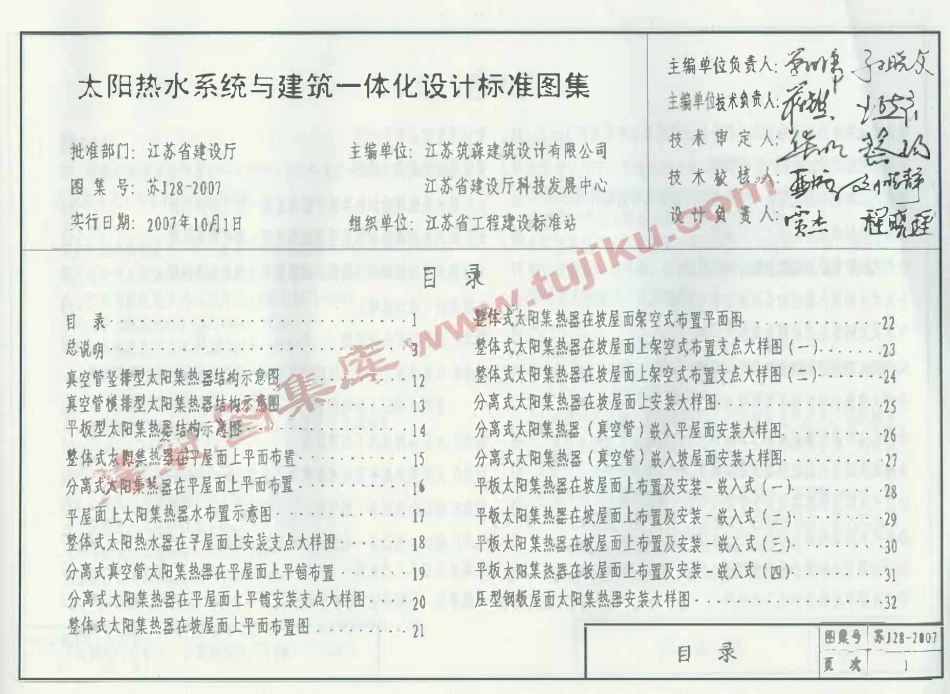 太阳热水系统与建筑一体化设计标准图集
批准部门: 江苏省建设厅
图 集 号: 苏J28-2007
实行日期: 2007年10月1日
主编单位: 江苏筑森建筑设计有限公司
江苏省建设厅科技发展中心
组织单位: 江苏省工程建设标准站
主编单位负责人:
主编单位技术负责人:
技 术 审 定 人:
技 术 校 核 人:
设 计 负 责 人:
目 录
目 录 1
总说明 3
真空管竖排型太阳集热器结构示意图 12
真空管横排型太阳集热器结构示意图 13
平板型太阳热器结构示意图 14
整体式太阳集热器在平屋面上平面布置 15
分离式太阳集热器在平屋面上平面布置 16
平屋面上太阳集热器水布置示意图 17
整体式太阳热水器在平屋面上安装支点大样图 18
分离式真空管太阳集热器在平屋面上平铺布置 19
分离式太阳集热器在平屋面上平铺安装支点大样图 20
整体式太阳集热器在坡屋面上平面布置图 21
整体式太阳集热器在坡屋面架空式布置平面图 22
整体式太阳集热器在坡屋面上架空式布置支点大样图(一) 23
整体式太阳集热器在坡屋面上架空式布置支点大样图(二) 24
分离式太阳集热器在坡屋面上安装大样图 25
分离式太阳集热器(真空管)嵌入平屋面安装大样图 26
分离式太阳集热器(真空管)嵌入坡屋面安装大样图 27
平板太阳集热器在坡屋面上布置及安装-嵌入式(一) 28
平板太阳集热器在坡屋面上布置及安装-嵌入式(二) 29
平板太阳集热器在坡屋面上布置及安装-嵌入式(三) 30
平板太阳集热器在坡屋面上布置及安装-嵌入式(四) 31
压型钢板屋面太阳集热器安装大样图 32
目 录
图集号 苏J28-2007
页 次 1
建筑图集库www.tujiku.com